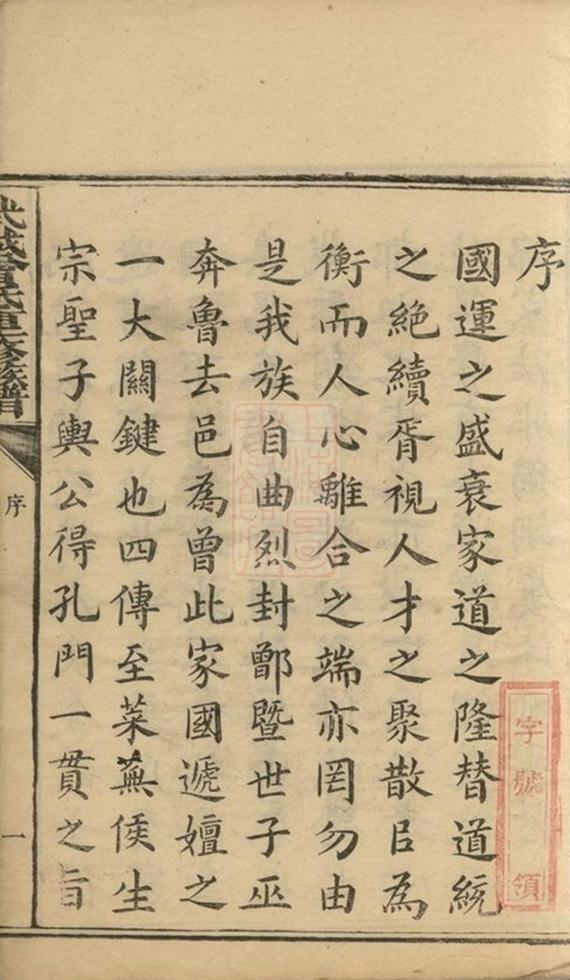 序
國運之盛衰家道之隆替道統
之絶續胥視人才之聚散㠯為
衡而人心離合之端亦罔勿由
是我族自曲烈封鄫暨世子巫
奔魯去邑為曾此家國遞嬗之
一大關鍵也四傳至萊蕪侯生
宗聖子輿公得孔門一貫之旨
武城曾氏重修族譜
序
一
字號
領